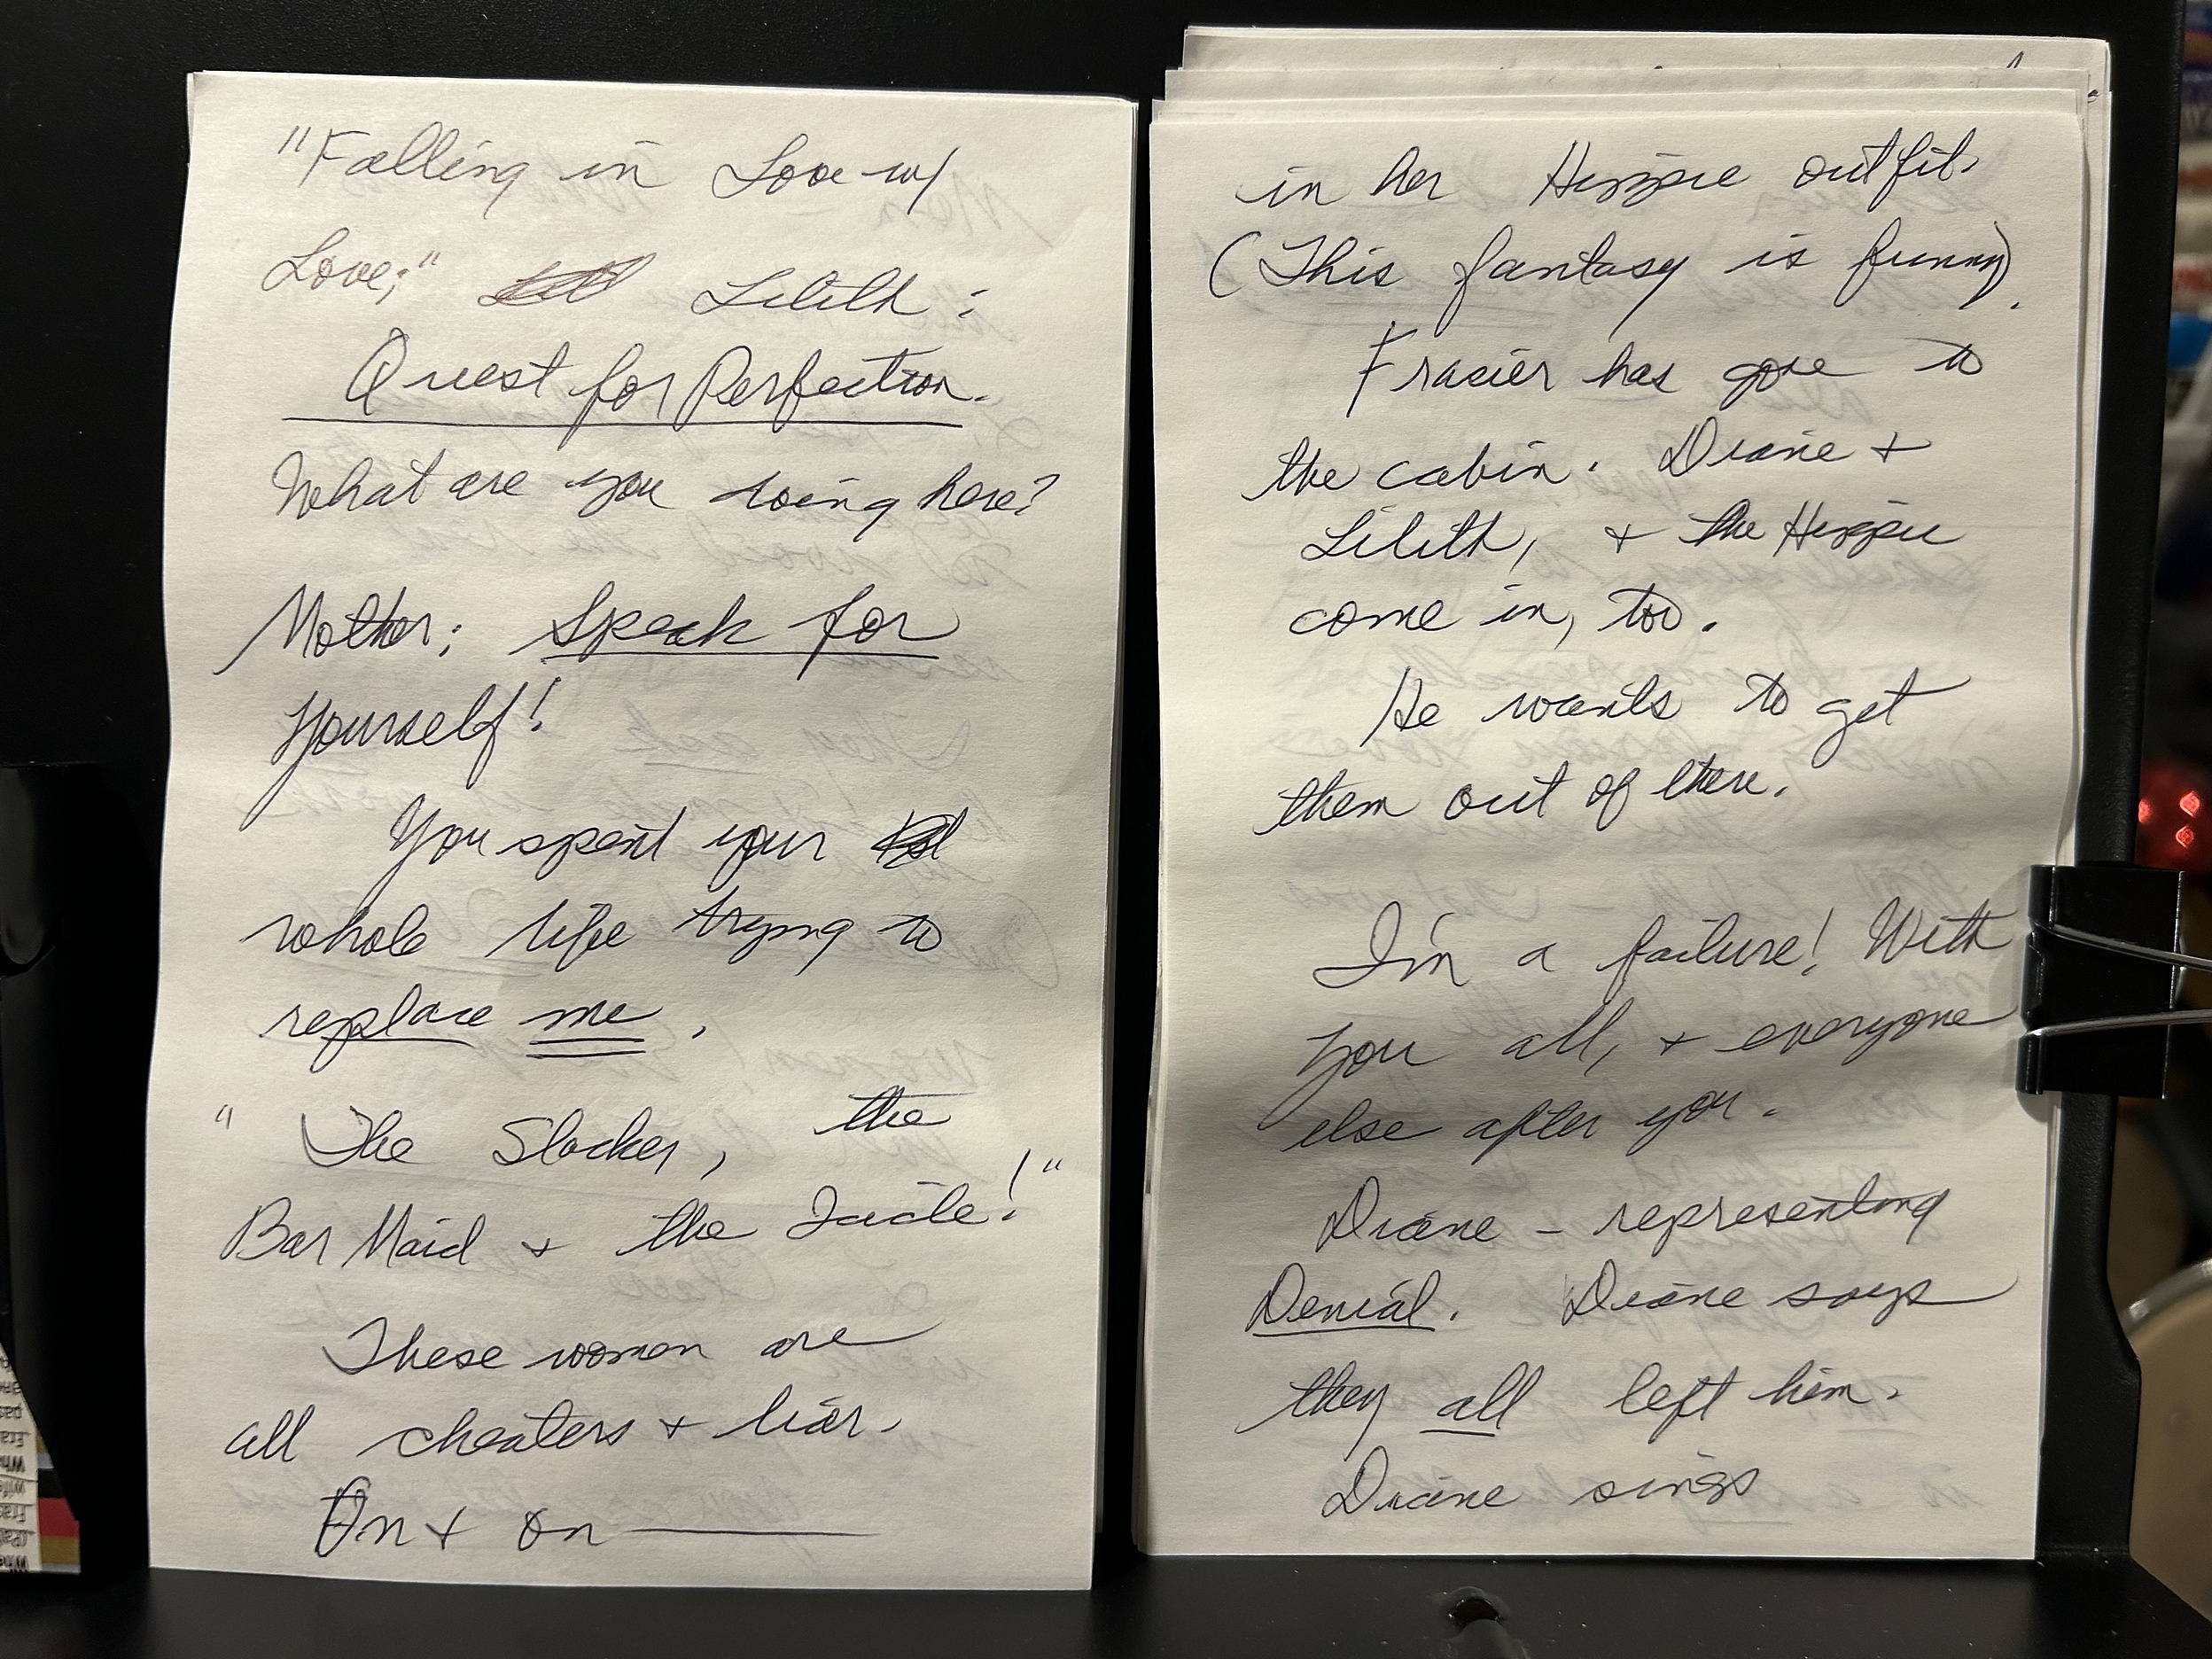 "Falling in Love w/
Love;" Lilith:
Quest for Perfection.
What are you doing here?
Mother; Speak for
Yourself!
You spent your
whole life trying to
replace me.
" The Slacker, the
Bar Maid + the Icicle!"
These women are
all cheaters + liar.
On + on
in her Hippie outfit.
(This fantasy is funny).
Frasier has gone to
the cabin. Diane +
Lilith, + the Hippie
come in, too.
He wants to get
them out of there.
I'm a failure! With
you all, + everyone
else after you.
Diane - representing
Denial. Diane says
they all left him.
Diane sings